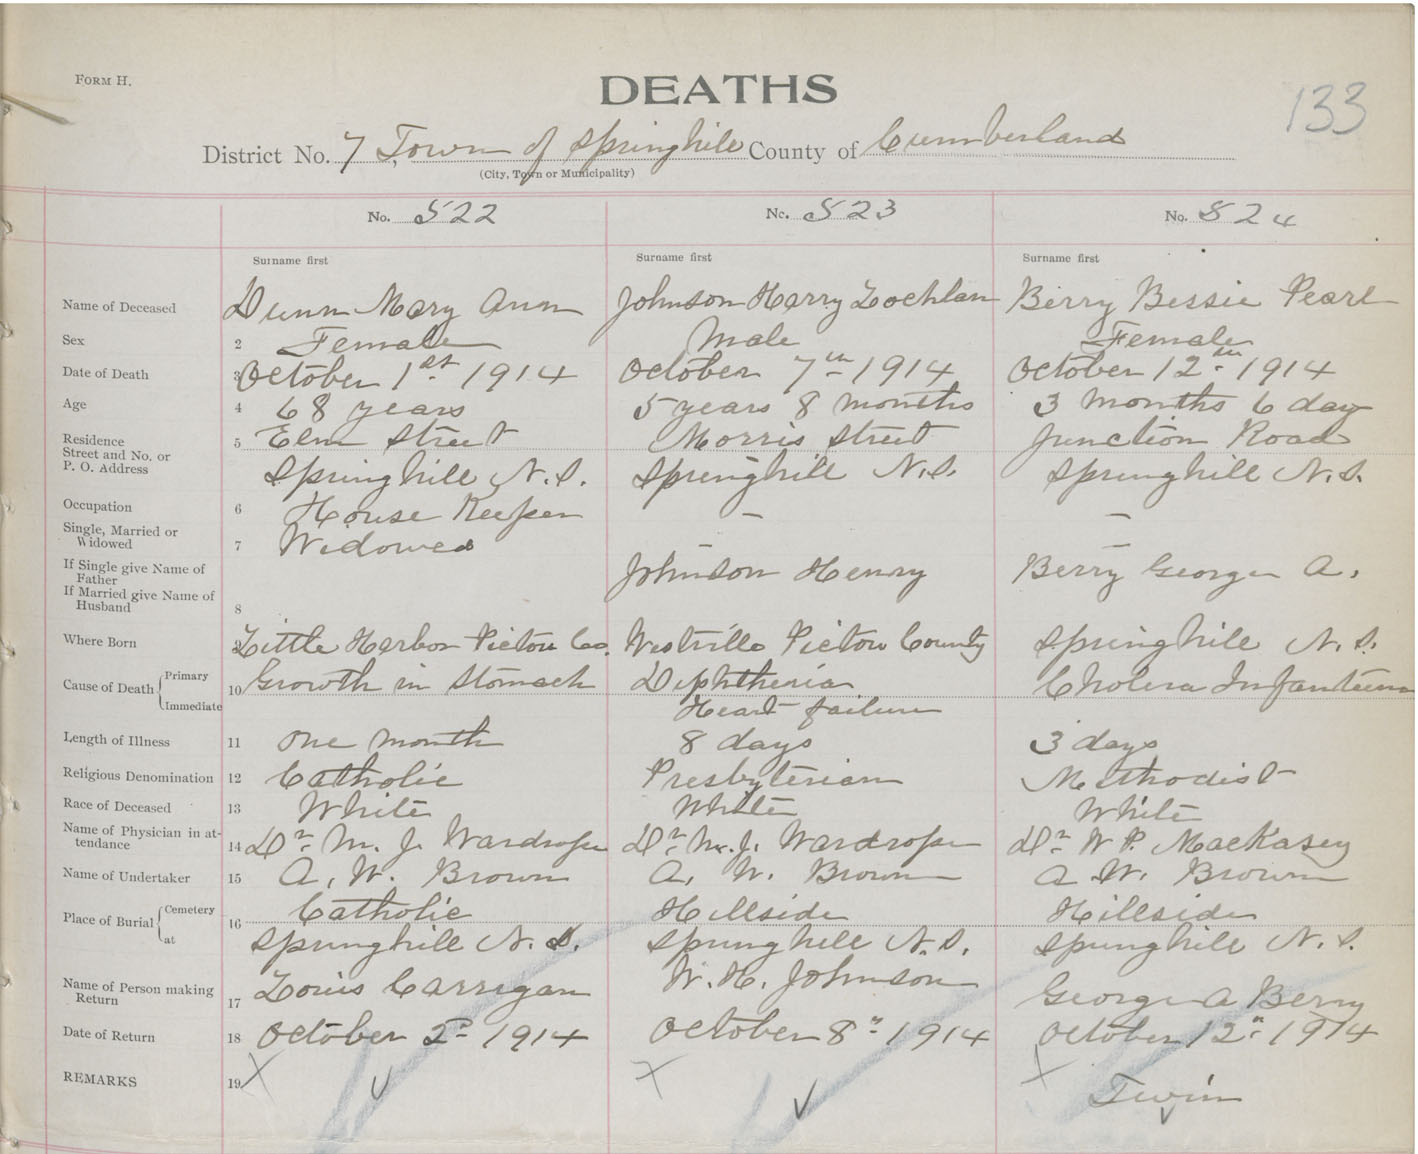 FORM H.
DEATHS
133
District No. 7 Town of Springhill County of Cumberland
(City, Town or Municipality)
No. 522 No. 523 No. 524
Surname first Surname first Surname first
Name of Deceased Dunn Mary Ann Johnson Harry Lochlan Berry Bessie Pearl
Sex 2 Female Male Female
Date of Death 3 October 1st 1914 October 7th 1914 October 12th 1914
Age 4 68 years 5 years 8 months 3 months 6 day
Residence
Street and No. or
P. O. Address
5 Elm Street Morris Street Junction Road
Springhill N.S. Springhill N.S. Springhill N.S.
Occupation 6 House Keeper — —
Single, Married or
Widowed
7 Widowed — —
If Single give Name of
Father
Johnson Henry Berry George A.
If Married give Name of
Husband
8
Where Born 9 Little Harbor Pictou Co. Westville Pictou County Springhill N.S.
Cause of Death Primary
Immediate
10 Growth in Stomach Diphtheria Cholera Infantum
Heart failure
Length of Illness 11 One month 8 days 3 days
Religious Denomination 12 Catholic Presbyterian Methodist
Race of Deceased 13 White White White
Name of Physician in attendance
14 Dr. M. J. Wardrope Dr. M. J. Wardrope Dr. W P. MacKasey
Name of Undertaker 15 A. W. Brown A. W. Brown A W. Brown
Place of Burial Cemetery
at
16 Catholic Hillside Hillside
Springhill N.S. Springhill N.S. Springhill N.S.
Name of Person making
Return
17 Louis Carrigan W. H. Johnson George A Berry
Date of Return 18 October 2d 1914 October 8th 1914 October 12th 1914
REMARKS 19 X X X
Twin